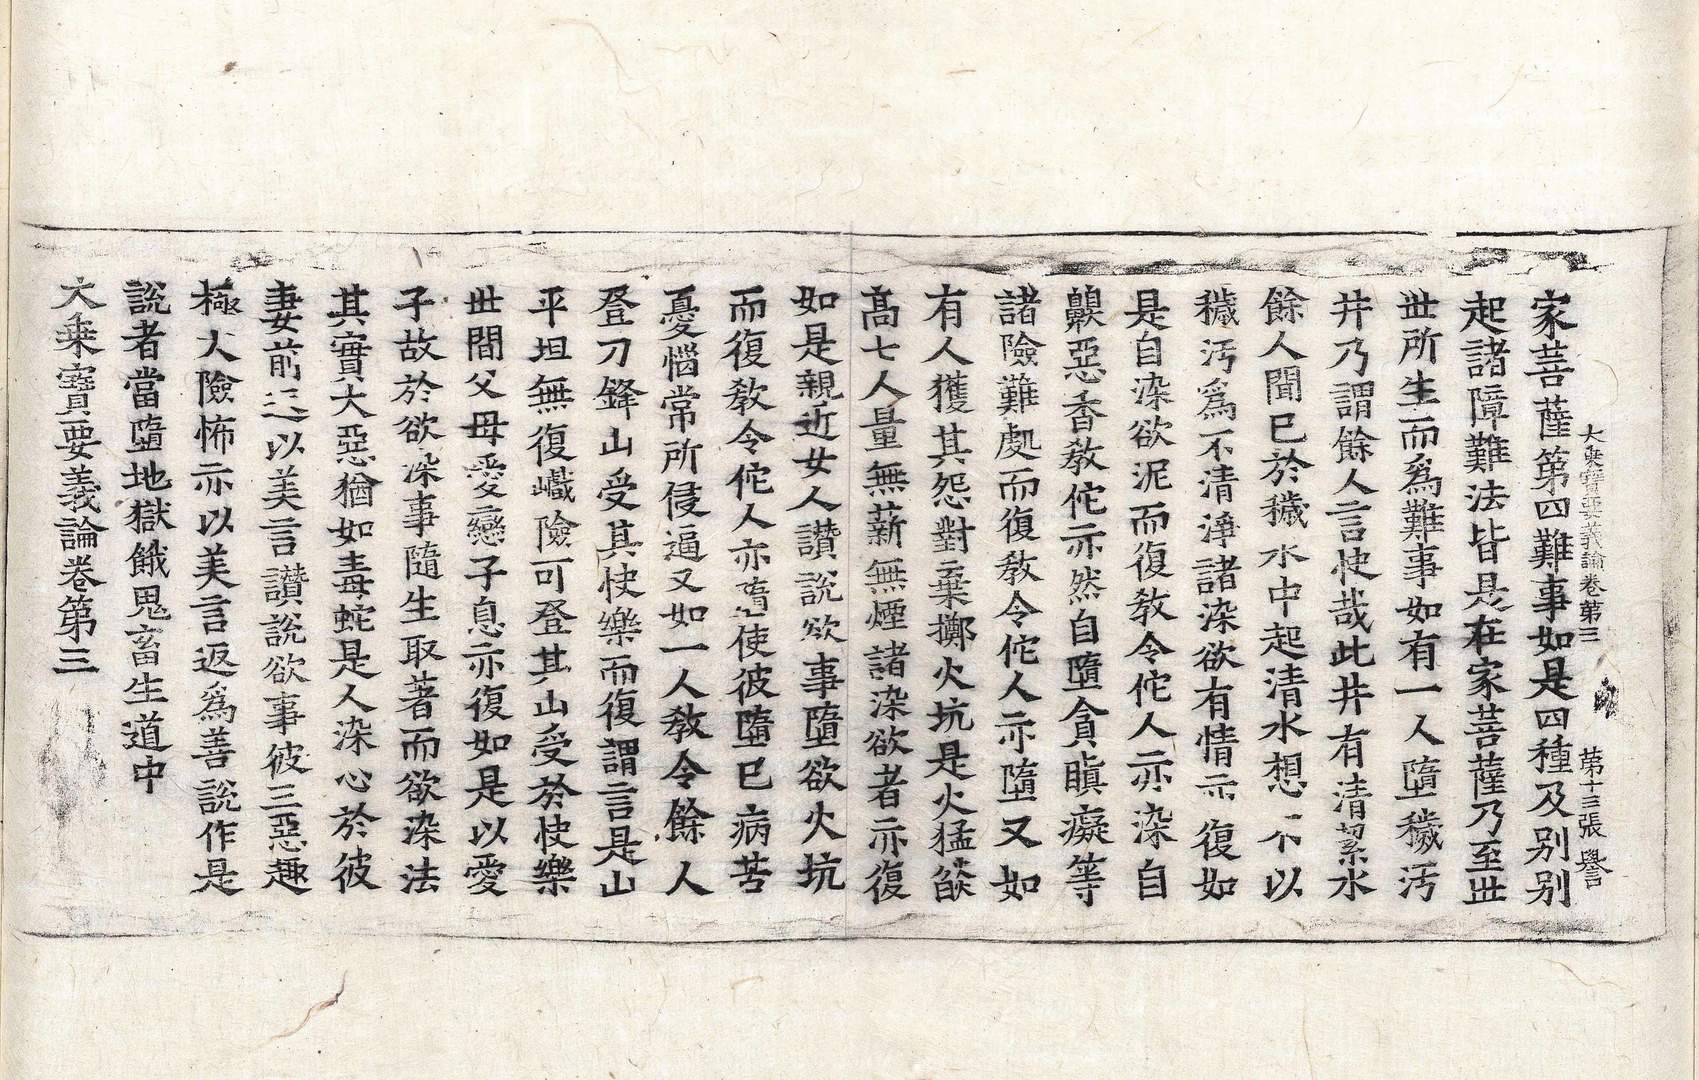 大乗寶要義論卷第三　第十三張　譽
家菩薩第四難事如是四種及别别
起諸障難法皆是在家菩薩乃至世
世所生而爲難事如有一人墮穢污
井乃謂餘人言快哉此井有清潔水
餘人聞已於穢水中起清水想不以
穢污爲不清淨諸染欲有情亦復如
是自染欲泥而復教令佗人亦染自
齅惡香教佗亦然自墮貪瞋癡等
諸險難處而復教令佗人亦墮又如
有人獲其怨對棄擲火坑是火猛燄
髙七人量無薪無煙諸染欲者亦復
如是親近女人讃說欲事墮欲火坑
而復教令佗人亦墮使彼墮已病苦
憂惱常所侵逼又如一人教令餘人
登刀鋒山受其快樂而復謂言是山
平坦無復巇險可登其山受於快樂
世間父母愛戀子息亦復如是以愛
子故於欲染事隨生取著而欲染法
其實大惡猶如毒蛇是人染心於彼
妻前返以美言讃說欲事彼三惡趣
極大險怖亦以美言返爲善說作是
說者當墮地獄餓鬼畜生道中
大乗寶要義論卷第三